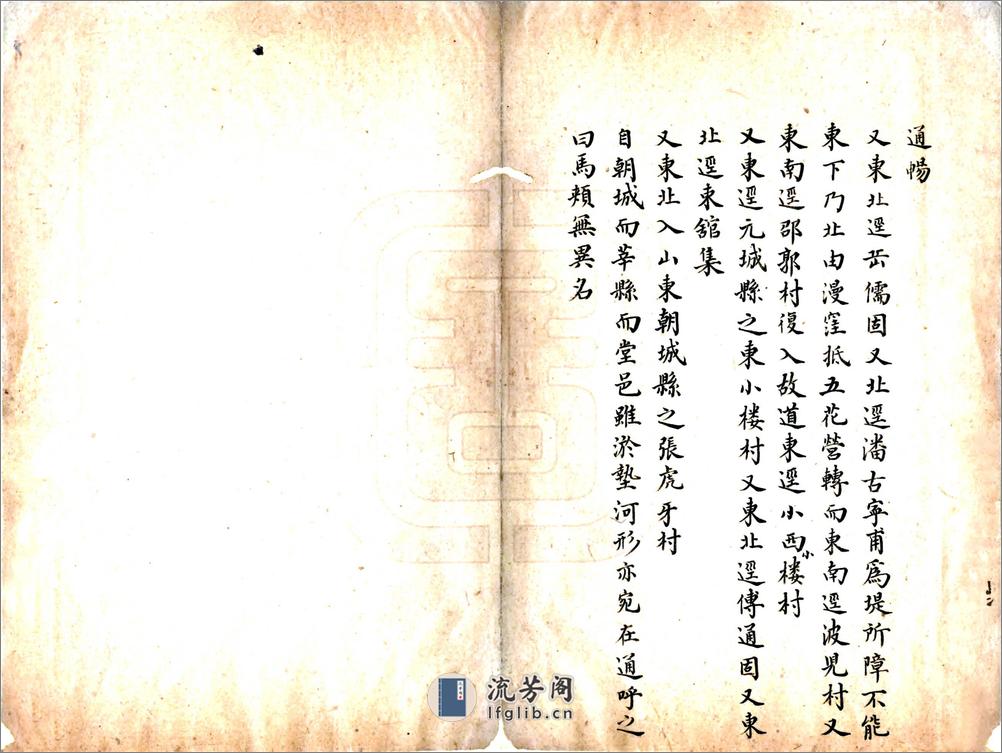 通暢
又東北逕岳儒固又北逕潘古寧甫爲堤所障不能
東下乃北由漫窪抵五花營轉而東南逕波見村又
東南逕邵郭村復入故道東逕小西小楼村
又東逕元城縣之東小楼村又東北逕傳通固又東
北逕東舘集
又東北入山東朝城縣之張虎牙村
自朝城而莘縣而堂邑雖淤墊河形亦宛在通呼之
曰馬頰無異名
流芳阁
lfglib.cn